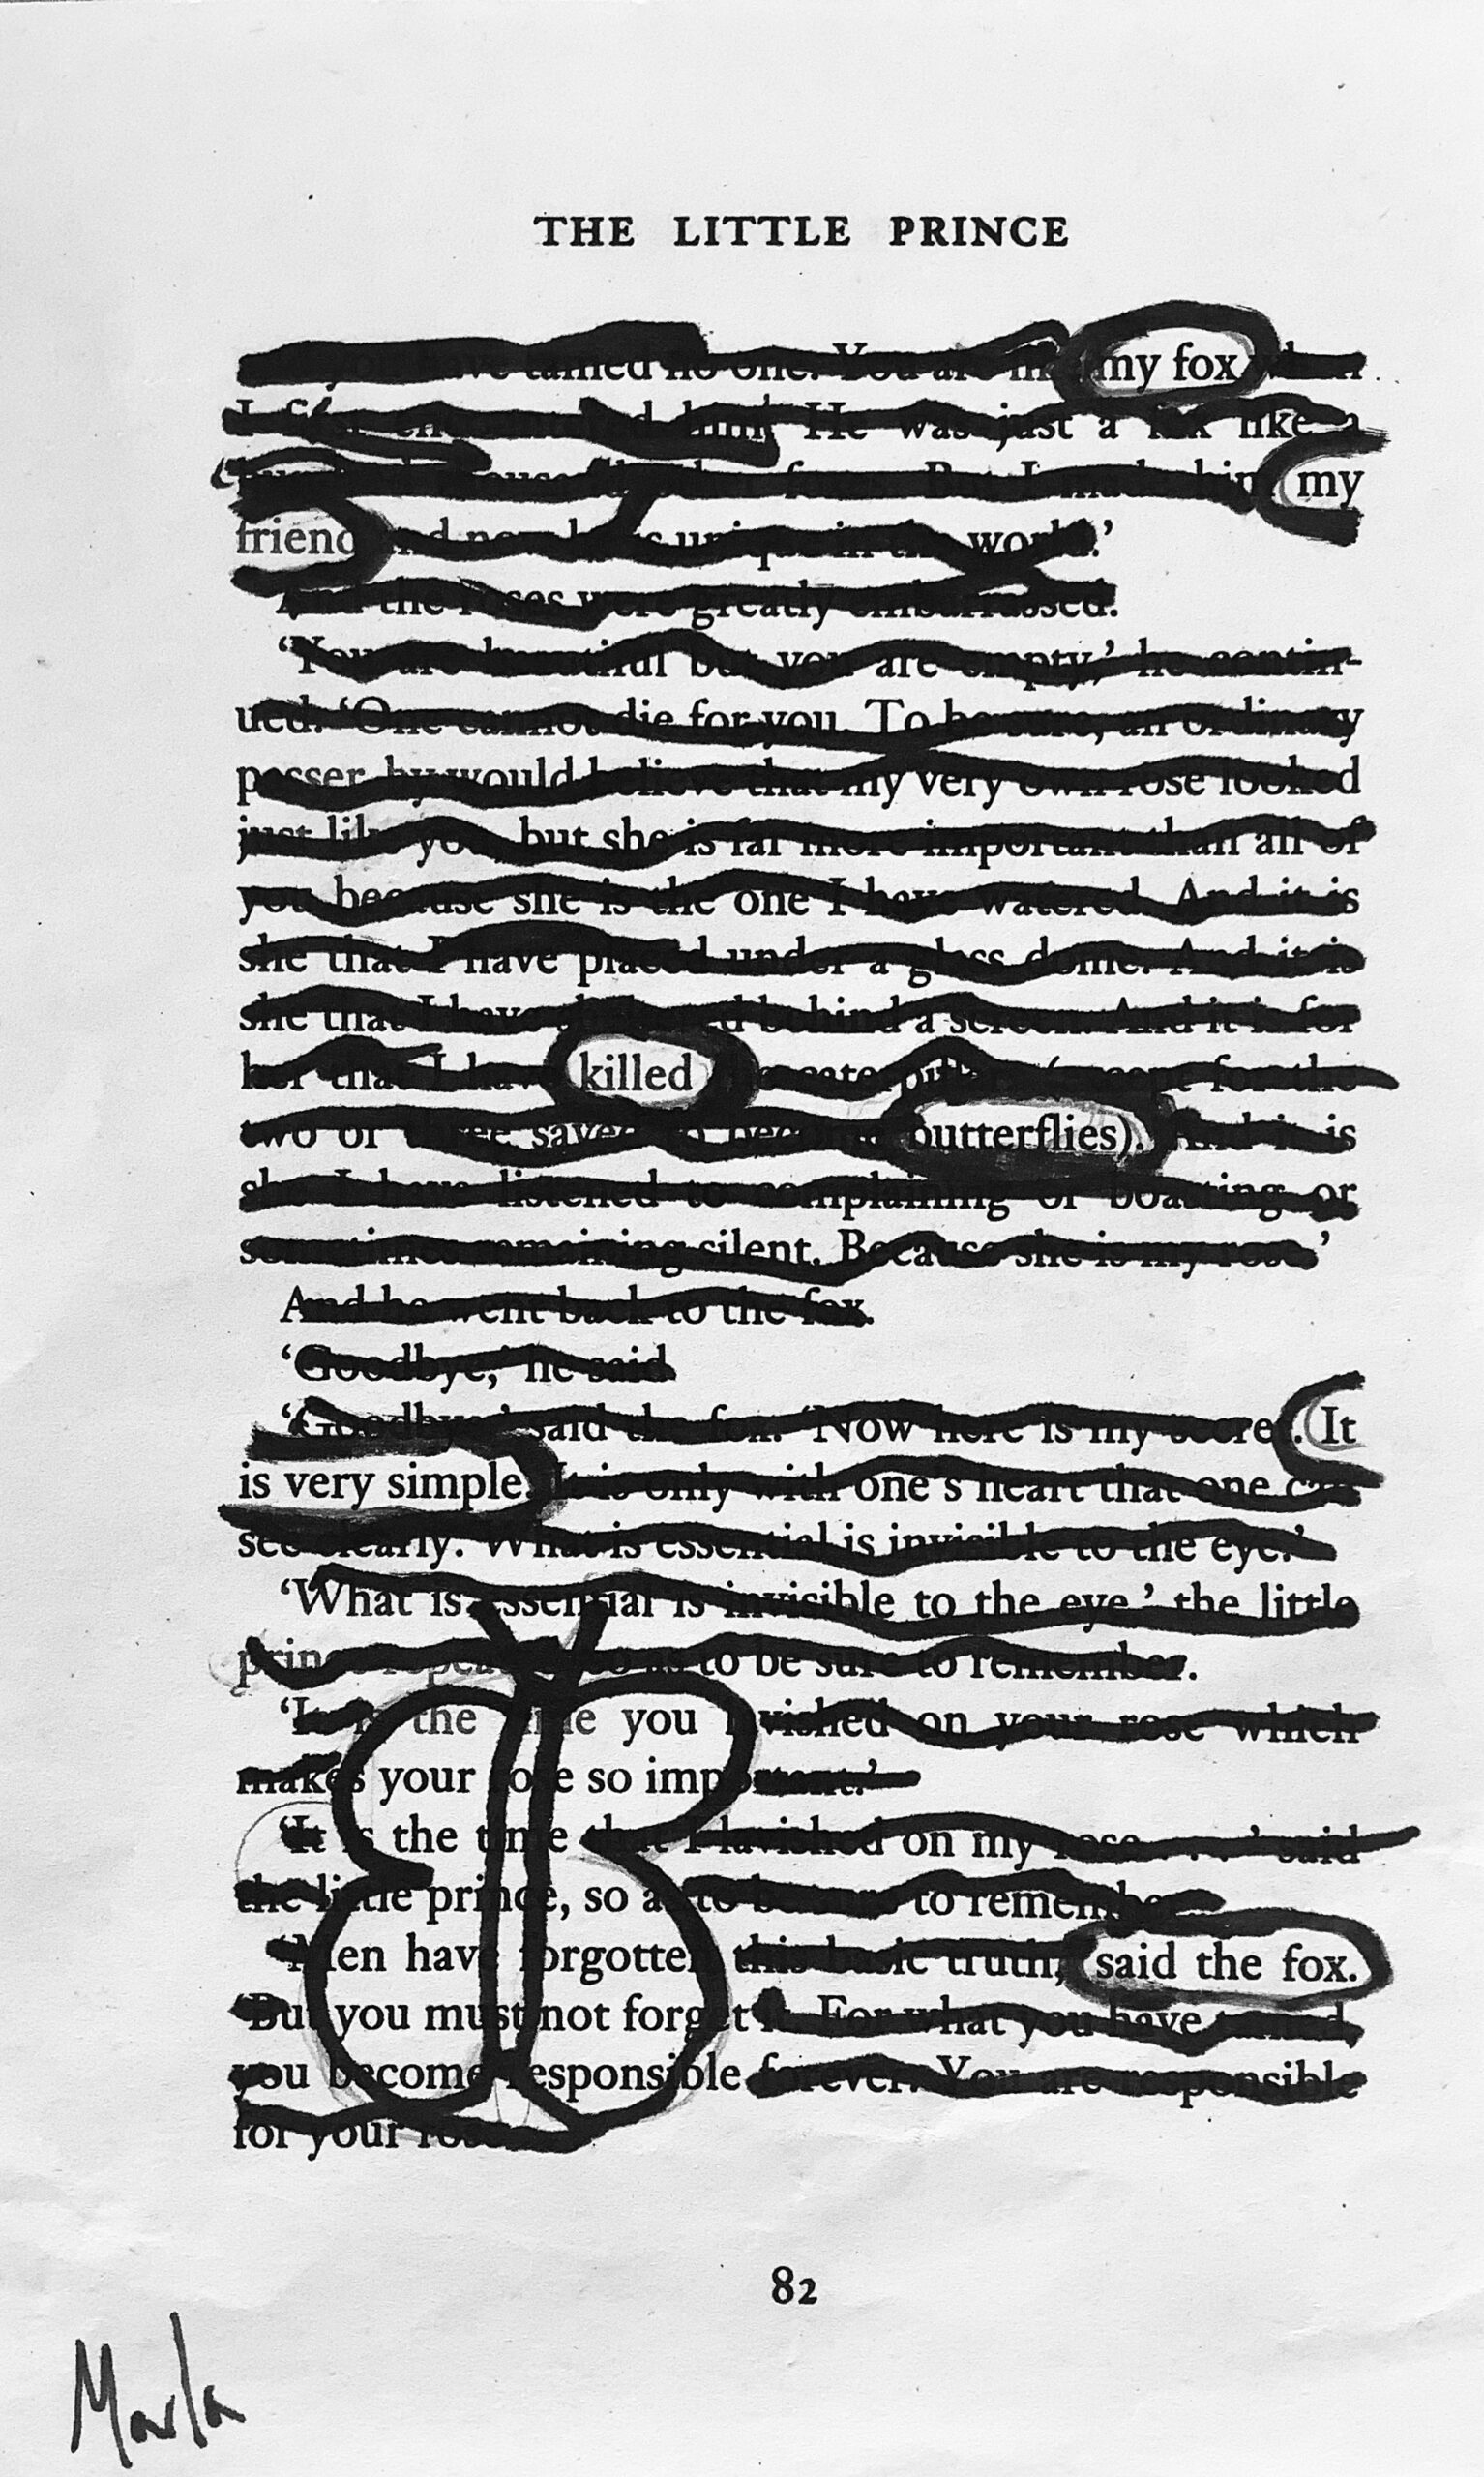 THE LITTLE PRINCE
tamed no one. You are my fox
He was just a fox like a
But I made him my
friend unique in the world.'
And the roses were greatly embarrassed.
'You are beautiful but you are empty,' he contin-
ued. 'One cannot die for you. To be sure, an ordinary
passer-by would believe that my very own rose looked
just like you, but she is far more important than all of
you because she is the one I have watered. And it is
she that I have placed under a glass dome. And it is
she that I have behind a screen. And it is for
her that I have killed the caterpillars (except for the
two or three saved to become butterflies). And it is
she I have listened to complaining or boasting or
sometimes remaining silent. Because she is my rose.'
And he went back to the fox.
'Goodbye,' he said.
'Goodbye,' said the fox. 'Now here is my secret. It
is very simple. It is only with one's heart that one can
see clearly. What is essential is invisible to the eye.'
'What is essential is invisible to the eye,' the little
prince repeated, so as to be sure to remember.
'It is the time you lavished on your rose which
makes your rose so important.'
'It is the time that I lavished on my rose . . .' said
the little prince, so as to be sure to remember.
'Men have forgotten this basic truth,' said the fox.
'But you must not forget it. For what you have tamed,
you become responsible forever. You are responsible
for your rose
82
Marla